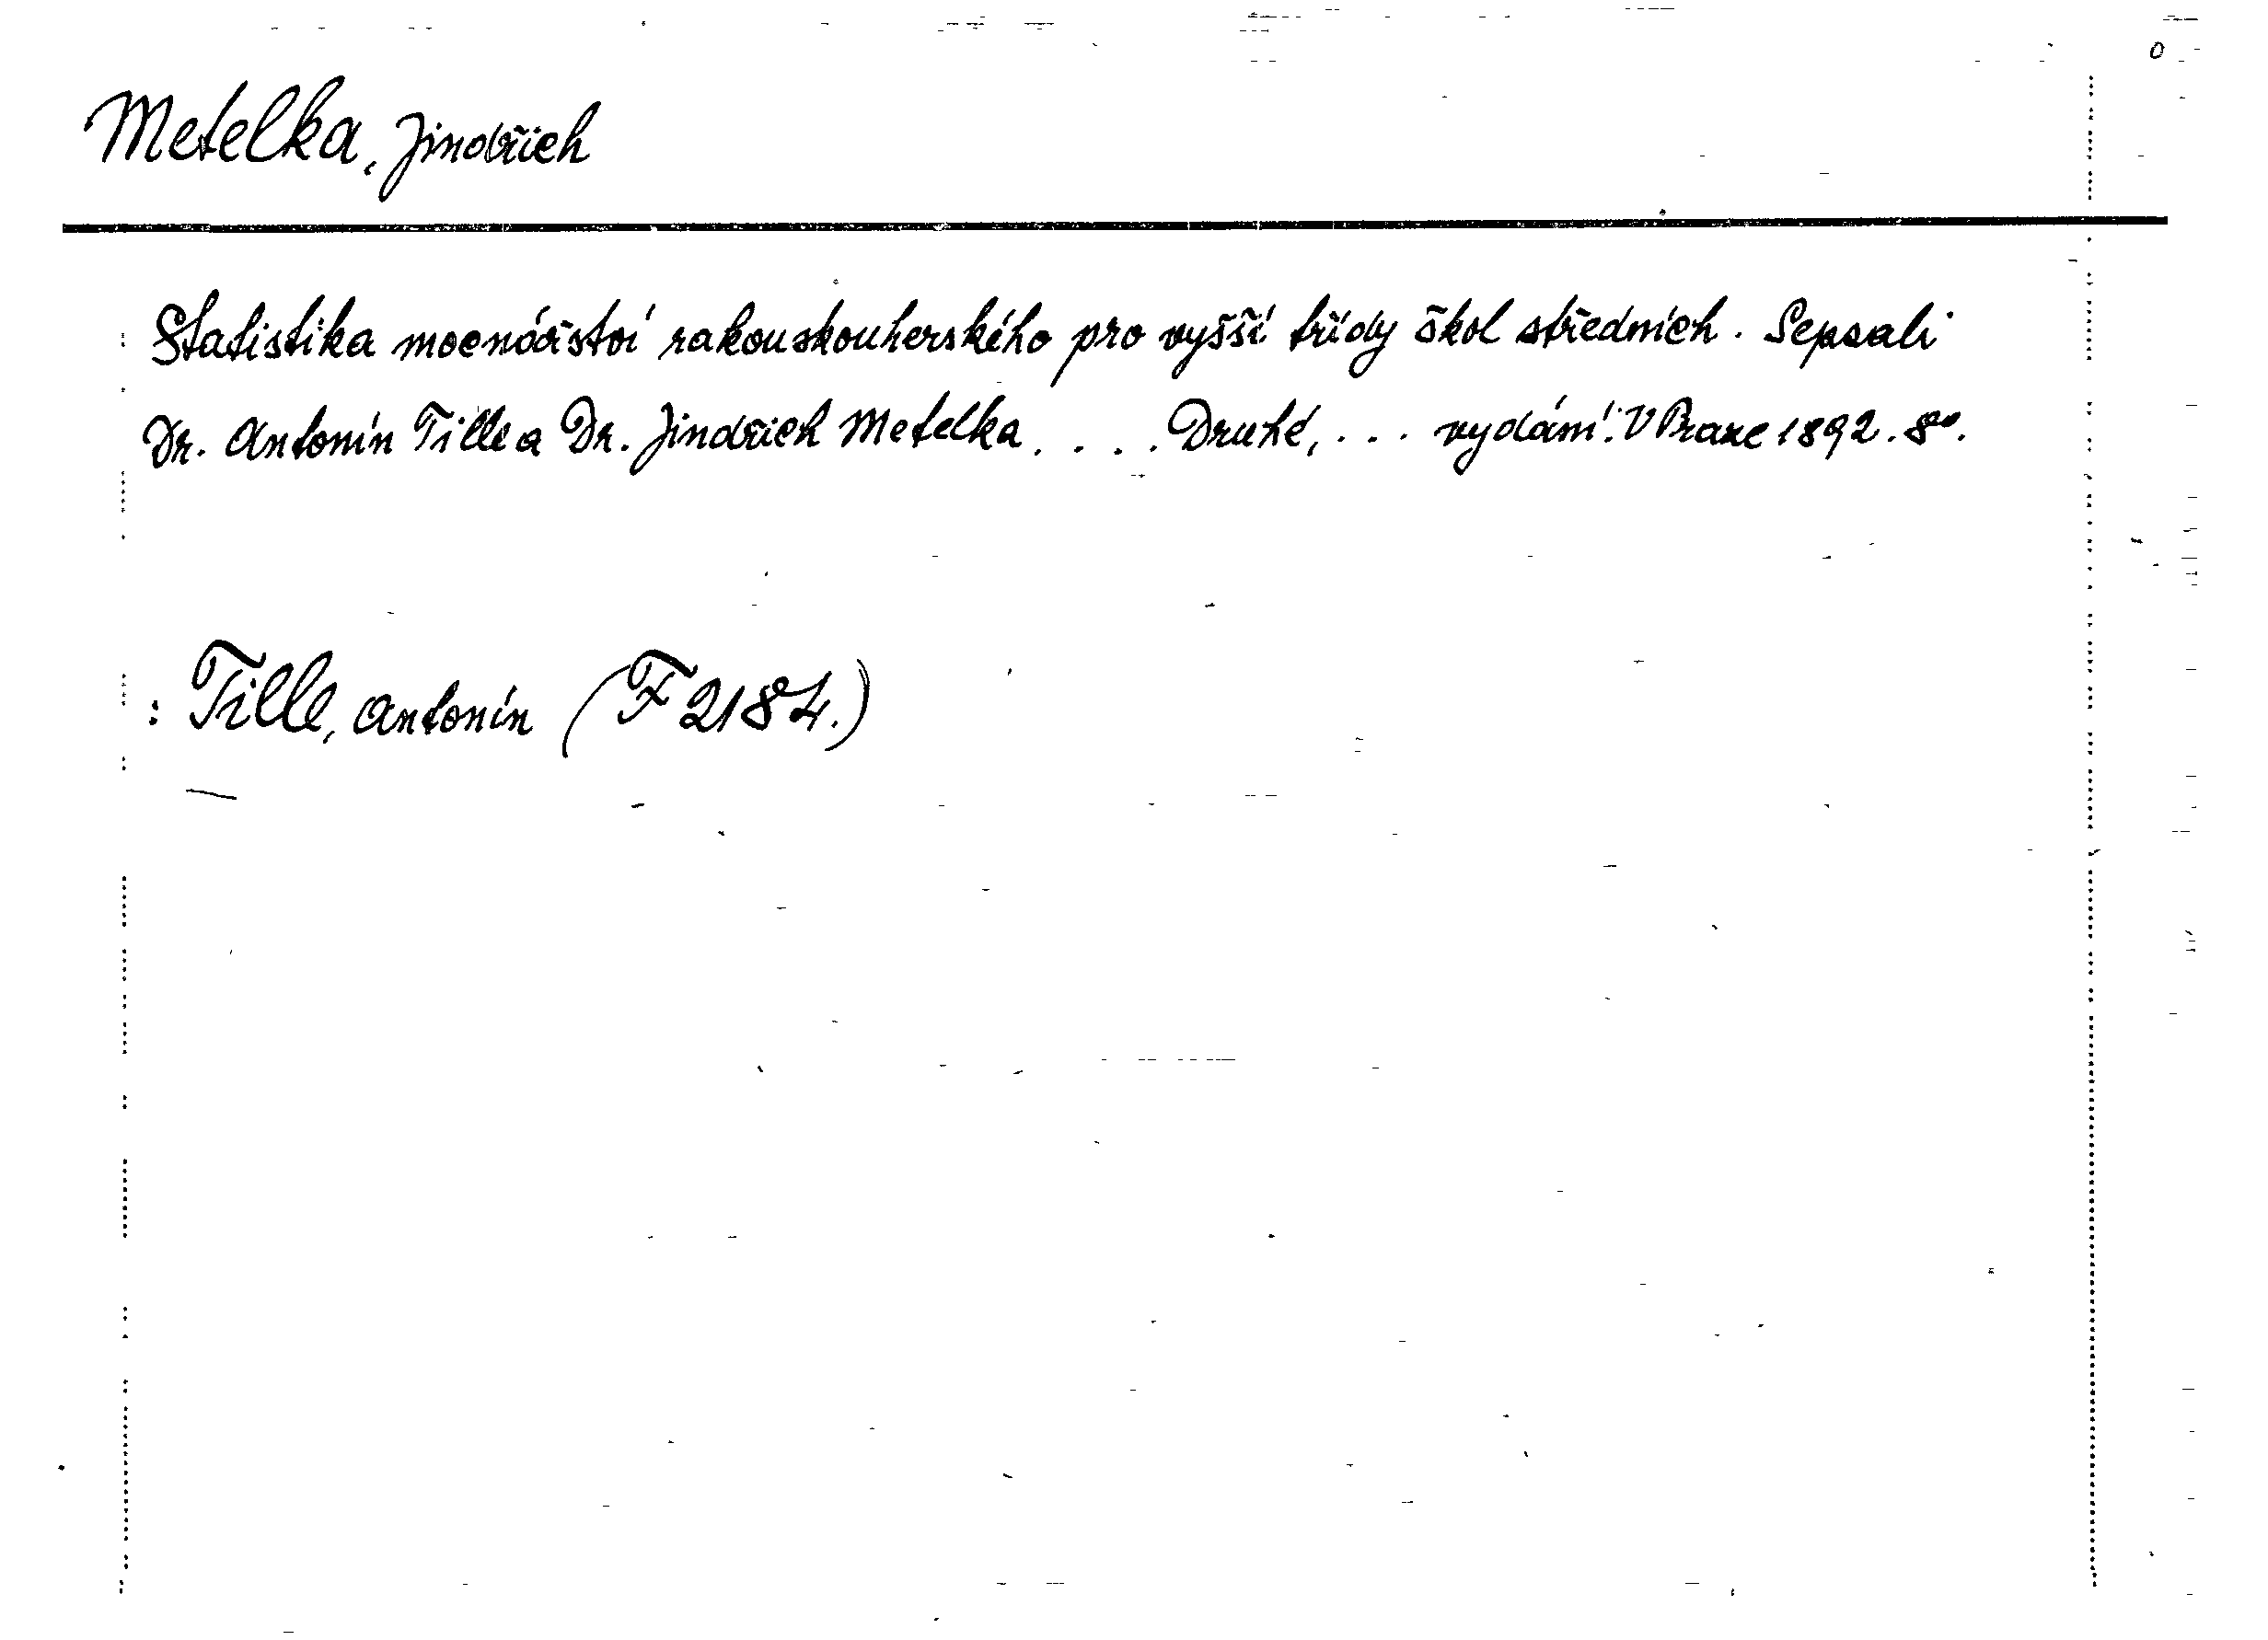 Metelka, Jindřich
Statistika mocnářství rakouskouherského pro vyšší třídy škol středních. Sepsali
Dr. Antonín Tille a Dr. Jindřich Metelka. . . . Druhé, . . . vydání. V Praze 1892. 8°.
: Tille, Antonín (F 2184.)